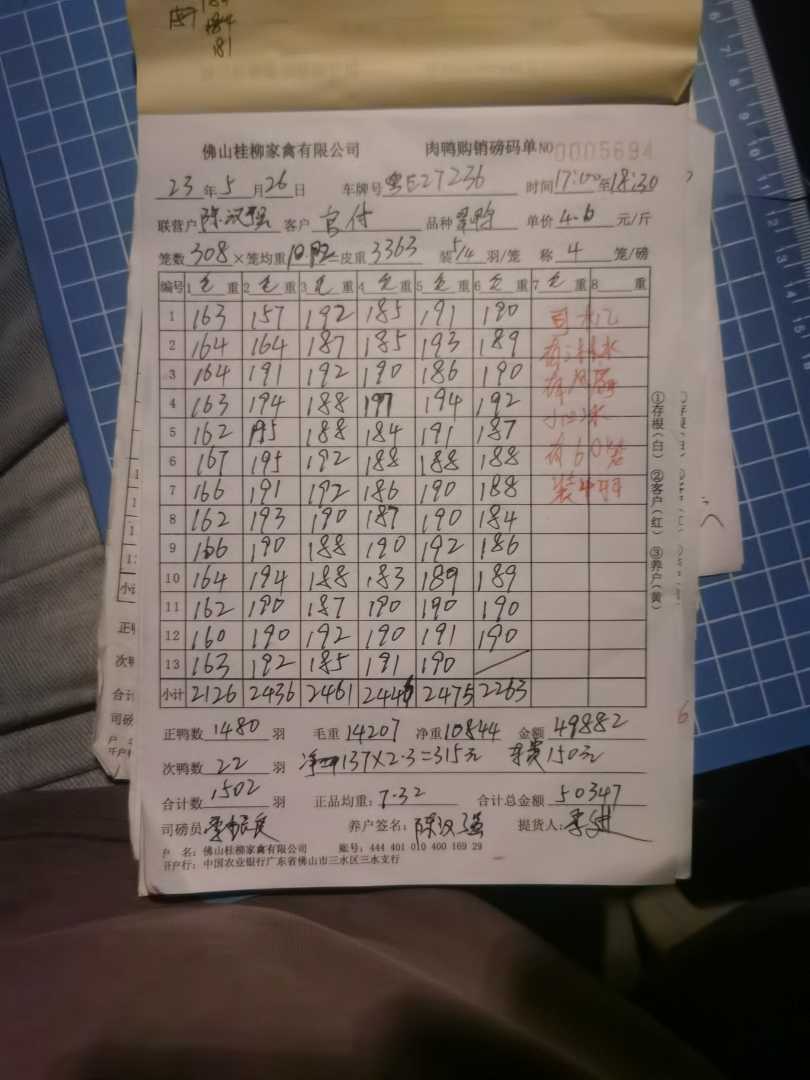 184
181
佛山桂柳家禽有限公司 肉鸭购销磅码单 NO 0005694
23年5月26日 车牌号 粤E27236 时间 17:00至18:30
联营户 陈汉强 客户 品种 单价 4.6 元/斤
笼数 308 ×笼均重 10.92 =皮重 3363 装 5/4 羽/笼 称 4 笼/磅
编号 1 毛重 2 毛重 3 毛重 4 毛重 5 毛重 6 毛重 7 毛重 8 重
1 163 157 192 185 191 190
2 164 164 187 185 193 189
3 164 191 192 190 186 190
4 163 194 188 197 194 192
5 162 195 188 184 191 187
6 167 195 192 188 188 188
7 166 191 192 186 190 188
8 162 193 190 187 190 184
9 166 190 188 190 192 186
10 164 194 188 183 189 189
11 162 190 187 190 190 190
12 160 190 192 190 191 190
13 163 192 185 191 190
小计 2126 2436 2461 2446 2475 2263
有60笼
装4羽
①存根(白) ②客户(红) ③养户(黄)
正鸭数 1480 羽 毛重 14207 净重 10844 金额 49882
次鸭数 22 羽 净重 137×2.3=315元 杂费150元
合计数 1502 羽 正品均重: 7.32 合计总金额 50347
司磅员 养户签名: 陈汉强 提货人:
户 名: 佛山桂柳家禽有限公司 账号: 444 401 010 400 169 29
开户行: 中国农业银行广东省佛山市三水区三水支行